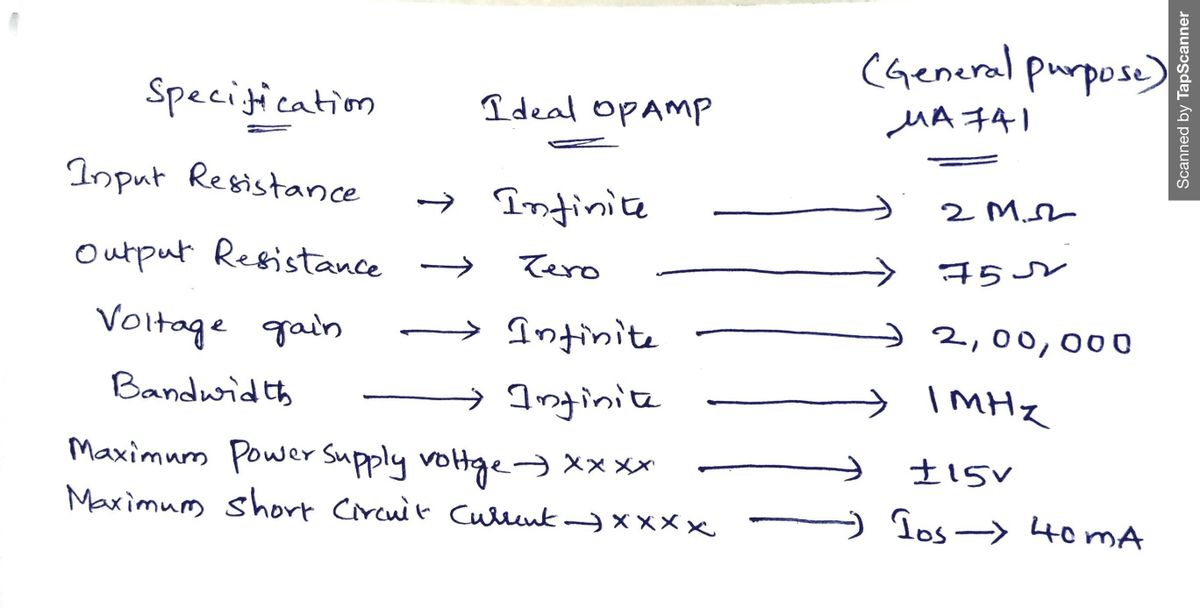 (General purpose)
Specification Ideal OPAMP μA 741
Input Resistance → Infinite → 2 M.Ω
Output Resistance → Zero → 75 Ω
Voltage gain → Infinite → 2,00,000
Bandwidth → Infinite → 1 MHz
Maximum Power Supply voltge → xxxx → ±15v
Maximum Short Circuit Current → xxxx → Ios → 40 mA
Scanned by TapScanner